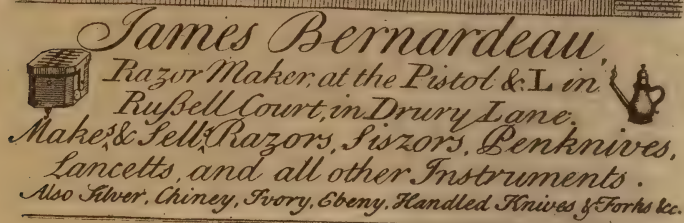 James Bernardeau,
Razor Maker, at the Pistol & L in
Rußell Court, in Drury Lane.
Makes & Sells Razors, Siszors, Penknives,
Lancetts, and all other Instruments.
Also Silver, Chiney, Ivory, Ebeny, Handled Knives & Forks &c.